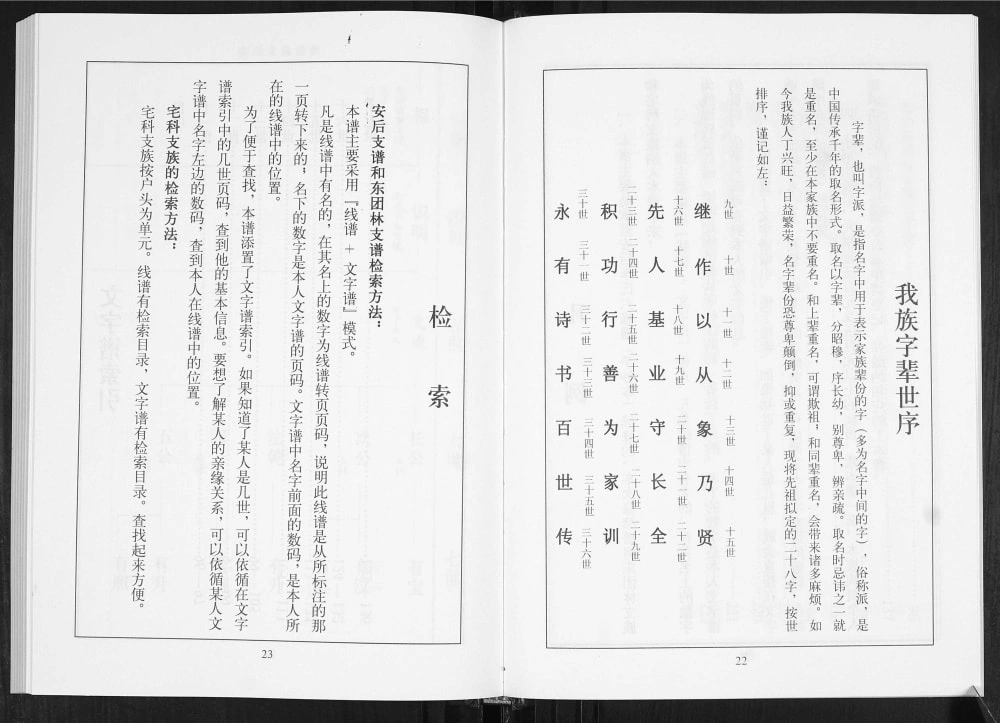 我族字辈世序
字辈，也叫字派，是指名字中用于表示家族辈份的字（多为名字中间的字），俗称派，是
中国传承千年的取名形式。取名以字辈，分昭穆，序长幼，别尊卑，辨亲疏。取名时忌讳之一就
是重名，至少在本家族中不要重名。和上辈重名，可谓欺祖；和同辈重名，会带来诸多麻烦。如
今我族人丁兴旺，日益繁荣，名字辈份恐尊卑颠倒，抑或重复，现将先祖拟定的二十八字，按世
排序，谨记如左：
九世 十世 十一世 十二世 十三世 十四世 十五世
继作以从象乃贤
十六世 十七世 十八世 十九世 二十世 二十一世 二十二世
先人基业守长全
二十三世 二十四世 二十五世 二十六世 二十七世 二十八世 二十九世
积功行善为家训
三十世 三十一世 三十二世 三十三世 三十四世 三十五世 三十六世
永有诗书百世传
22
检索
安后支谱和东团林支谱检索方法：
本谱主要采用『线谱＋文字谱』模式。
凡是线谱中有名的，在其名上的数字为线谱转页页码，说明此线谱是从所标注的那
一页转下来的；名下的数字是本人文字谱的页码。文字谱中名字前面的数码，是本人所
在的线谱中的位置。
为了便于查找，本谱添置了文字谱索引。如果知道了某人是几世，可以依循在文字
谱索引中的几世页码，查到他的基本信息。要想了解某人的亲缘关系，可以依循某人文
字谱中名字左边的数码，查到本人在线谱中的位置。
宅科支族的检索方法：
宅科支族按户头为单元。线谱有检索目录，文字谱有检索目录。查找起来方便。
23